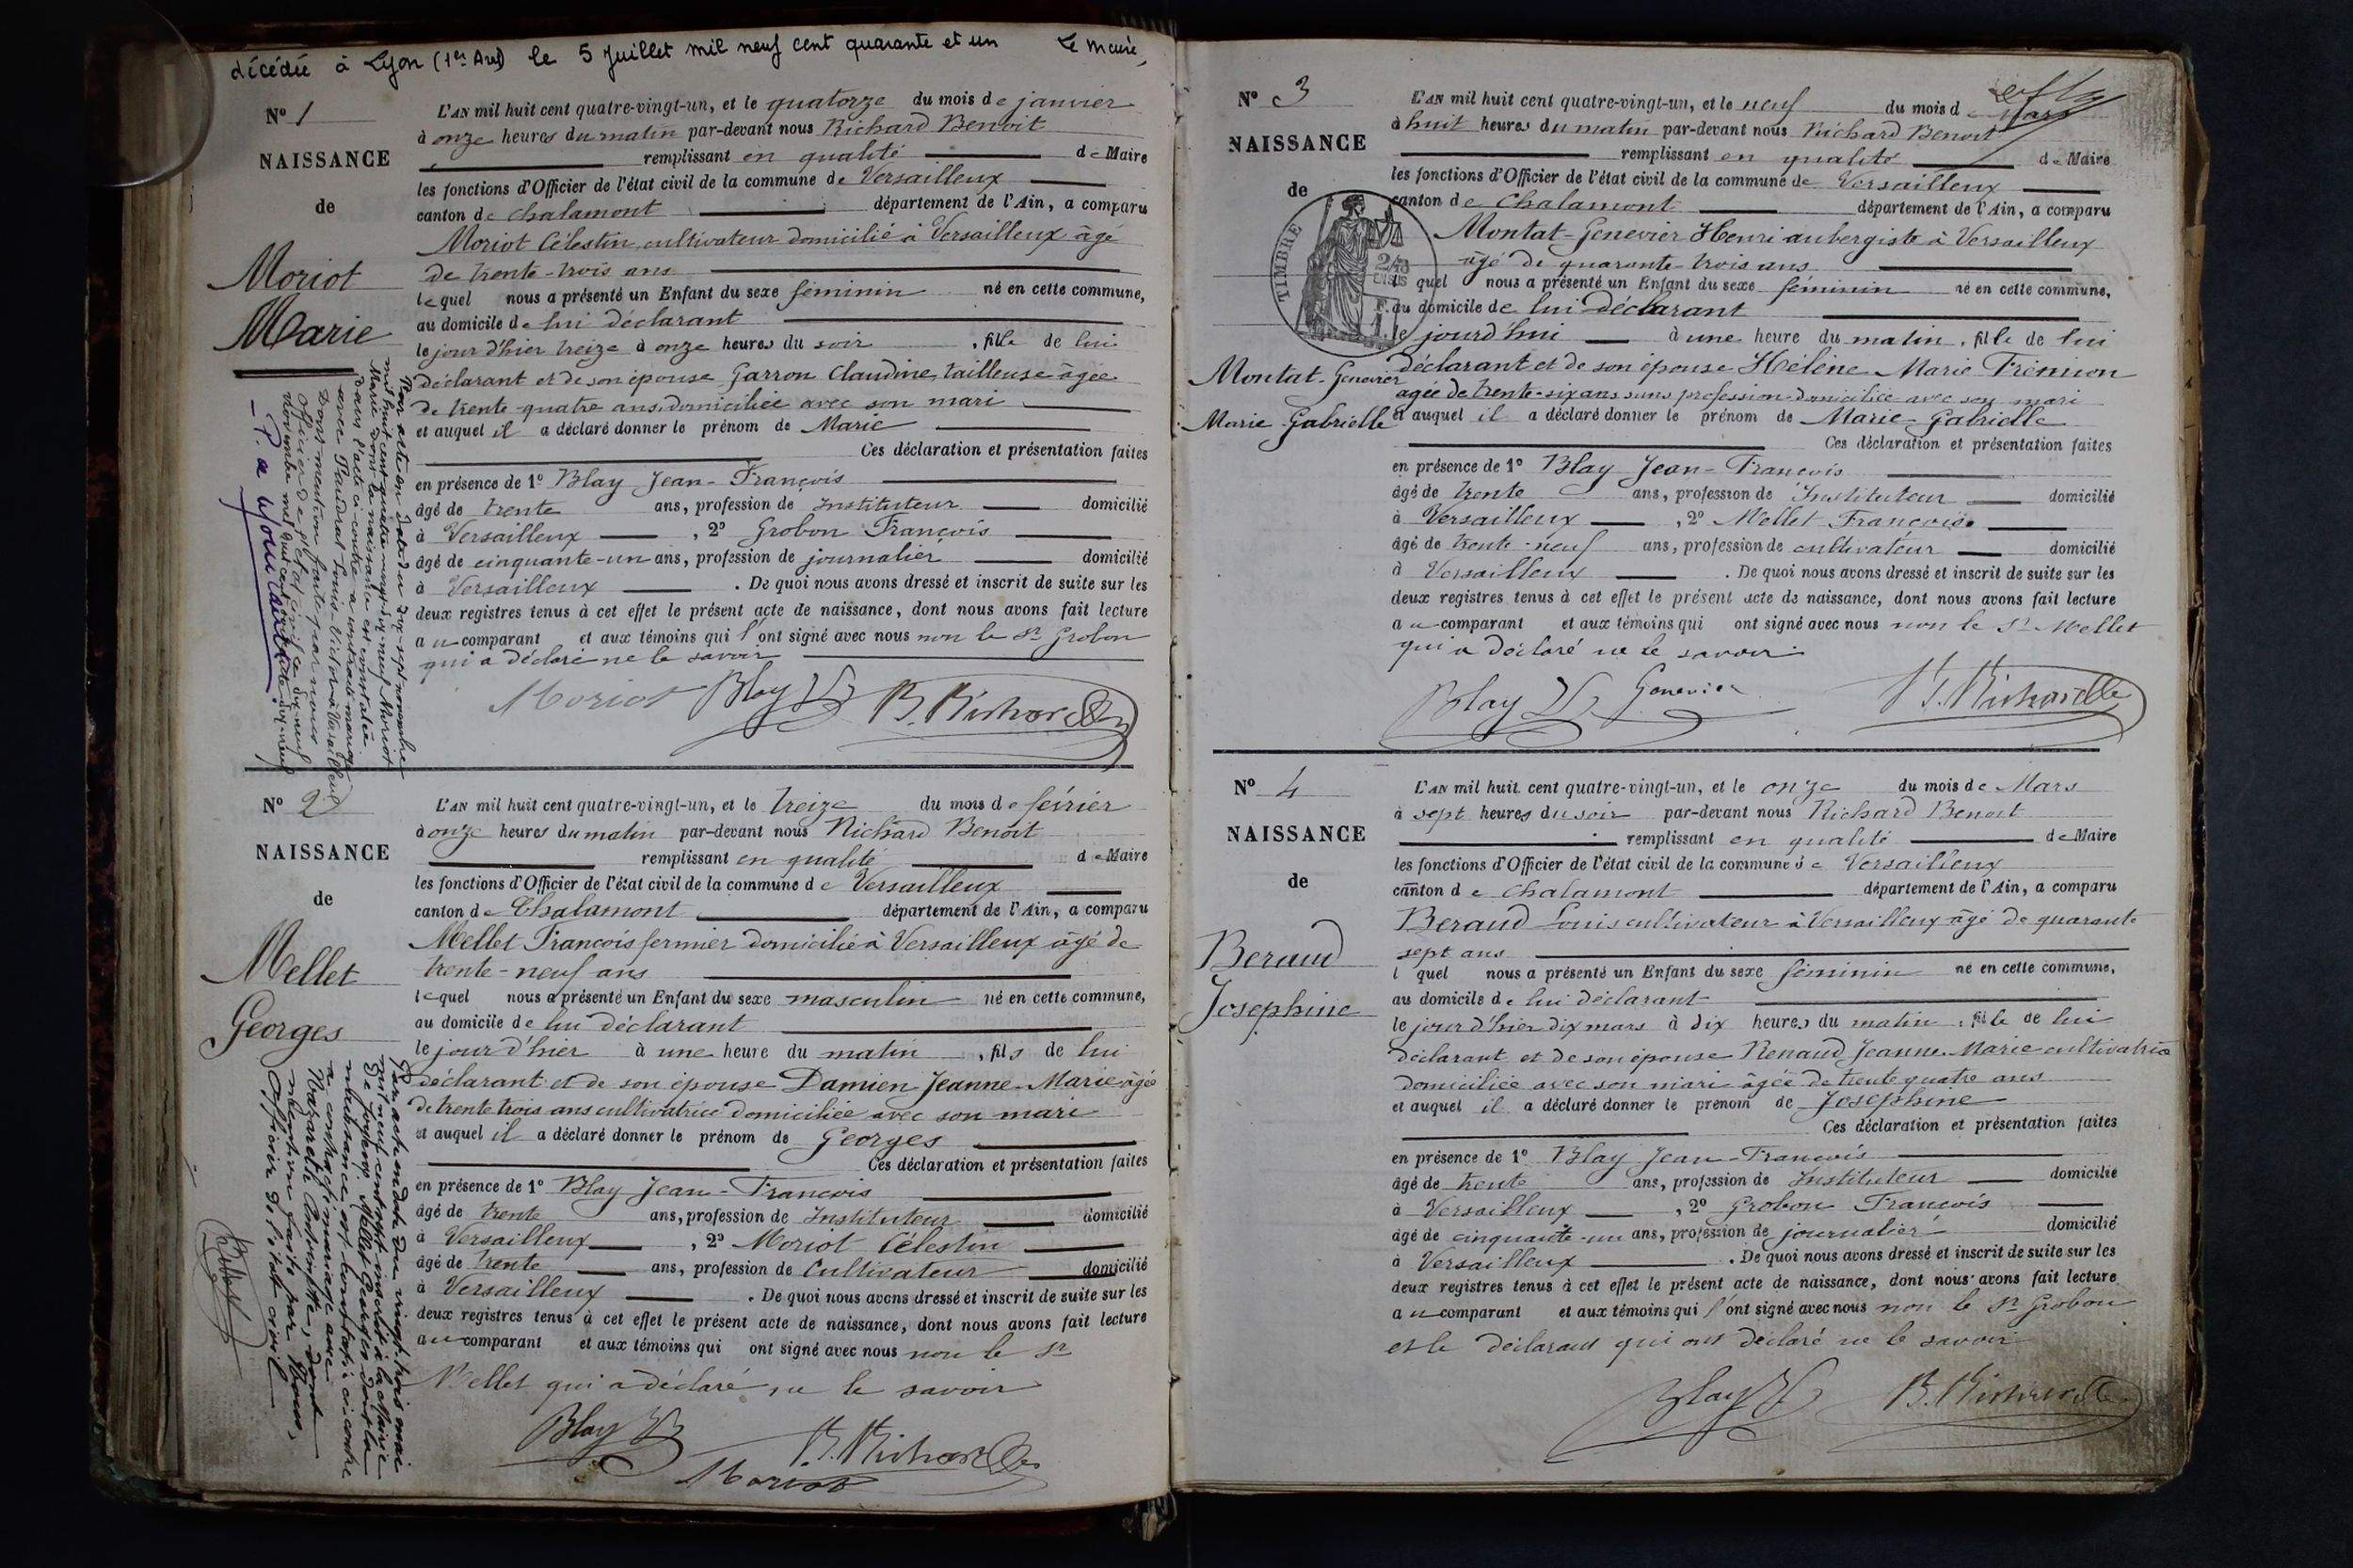 décédée à Lyon (1er Arr) le 5 Juillet mil neuf cent quarante et un Le maire,
N° 1
NAISSANCE
de
Moriot
Marie
L'AN mil huit cent quatre-vingt-un, et le quatorze du mois de janvier
à onze heures du matin par-devant nous Richard Benoit
remplissant en qualité de Maire
les fonctions d'Officier de l'état civil de la commune de Versailleux
canton de Chalamont département de l'Ain, a comparu
Moriot Célestin cultivateur domicilié à Versailleux âgé
de trente-trois ans
lequel nous a présenté un Enfant du sexe féminin né en cette commune,
au domicile de lui déclarant
le jour d'hier treize à onze heures du soir, fille de lui
déclarant et de son épouse Garron Claudine, tailleuse âgée
de trente-quatre ans, domiciliée avec son mari
et auquel il a déclaré donner le prénom de Marie
Ces déclaration et présentation faites
en présence de 1° Blay Jean-François
âgé de trente ans, profession de Instituteur domicilié
à Versailleux, 2° Grobon François
âgé de cinquante-un ans, profession de journalier domicilié
à Versailleux. De quoi nous avons dressé et inscrit de suite sur les
deux registres tenus à cet effet le présent acte de naissance, dont nous avons fait lecture
au comparant et aux témoins qui l'ont signé avec nous non le Sr Grobon
qui a déclaré ne le savoir
Moriot Blay B. Richard
Par acte en date du dix-sept novembre
mil huit cent quatre-vingt-dix-neuf Moriot
Marie dont la naissance est constatée
dans l'acte ci-contre a contracté mariage
avec Paudrat Louis-Victor à Versailleux
Dont mention faite par nous
Officier de l'état civil ce dix-neuf
novembre mil huit cent
N° 2
NAISSANCE
de
Mellet
Georges
L'AN mil huit cent quatre-vingt-un, et le treize du mois de février
à onze heures du matin par-devant nous Richard Benoit
remplissant en qualité de Maire
les fonctions d'Officier de l'état civil de la commune de Versailleux
canton de Chalamont département de l'Ain, a comparu
Mellet François fermier domicilié à Versailleux âgé de
trente-neuf ans
lequel nous a présenté un Enfant du sexe masculin né en cette commune,
au domicile de lui déclarant
le jour d'hier à une heure du matin, fils de lui
déclarant et de son épouse Damien Jeanne-Marie âgée
de trente trois ans cultivatrice domiciliée avec son mari
et auquel il a déclaré donner le prénom de Georges
Ces déclaration et présentation faites
en présence de 1° Blay Jean-François
âgé de trente ans, profession de Instituteur domicilié
à Versailleux, 2° Moriot Célestin
âgé de trente ans, profession de Cultivateur domicilié
à Versailleux. De quoi nous avons dressé et inscrit de suite sur les
deux registres tenus à cet effet le présent acte de naissance, dont nous avons fait lecture
au comparant et aux témoins qui ont signé avec nous non le Sr
Mellet qui a déclaré ne le savoir
Blay B. Richard
Moriot
Par acte en date du vingt-trois mai
mil neuf cent sept inscrit à la Mairie
de Mellet Georges dont la
naissance est constatée ci-contre
a contracté mariage avec
Nazareth Antoinette, dont
mention faite par Nous,
Officier de l'état civil
N° 3
NAISSANCE
de
TIMBRE
Montat-Genevier
Marie Gabrielle
L'AN mil huit cent quatre-vingt-un, et le neuf du mois de Mars
à huit heures du matin par-devant nous Richard Benoit
remplissant en qualité de Maire
les fonctions d'Officier de l'état civil de la commune de Versailleux
canton de Chalamont département de l'Ain, a comparu
Montat-Genevier Henri aubergiste à Versailleux
âgé de quarante-trois ans
quel nous a présenté un Enfant du sexe féminin né en cette commune,
au domicile de lui déclarant
le jourd'hui à une heure du matin, fille de lui
déclarant et de son épouse Hélène Marie Frémion
agée de trente-six ans sans profession domiciliée avec son mari
et auquel il a déclaré donner le prénom de Marie-Gabrielle
Ces déclaration et présentation faites
en présence de 1° Blay Jean-François
âgé de trente ans, profession de Instituteur domicilié
à Versailleux, 2° Mellet François
âgé de trente-neuf ans, profession de cultivateur domicilié
à Versailleux. De quoi nous avons dressé et inscrit de suite sur les
deux registres tenus à cet effet le présent acte de naissance, dont nous avons fait lecture
au comparant et aux témoins qui ont signé avec nous non le Sr Mellet
qui a déclaré ne le savoir
Blay Genevier B. Richard
N° 4
NAISSANCE
de
Beraud
Josephine
L'AN mil huit cent quatre-vingt-un, et le onze du mois de Mars
à sept heures du soir par-devant nous Richard Benoit
remplissant en qualité de Maire
les fonctions d'Officier de l'état civil de la commune de Versailleux
canton de Chalamont département de l'Ain, a comparu
Beraud Louis cultivateur à Versailleux âgé de quarante
sept ans
l quel nous a présenté un Enfant du sexe féminin né en cette commune,
au domicile de lui déclarant
le jour d'hier dix mars à dix heures du matin, fille de lui
déclarant et de son épouse Renaud Jeanne-Marie cultivatrice
domiciliée avec son mari âgée de trente quatre ans
et auquel il a déclaré donner le prénom de Josephine
Ces déclaration et présentation faites
en présence de 1° Blay Jean-François
âgé de trente ans, profession de Instituteur domicilié
à Versailleux, 2° Grobon François
âgé de cinquante-un ans, profession de journalier domicilié
à Versailleux. De quoi nous avons dressé et inscrit de suite sur les
deux registres tenus à cet effet le présent acte de naissance, dont nous avons fait lecture
au comparant et aux témoins qui l'ont signé avec nous non le Sr Grobon
et le déclarant qui ont déclaré ne le savoir
Blay B. Richard